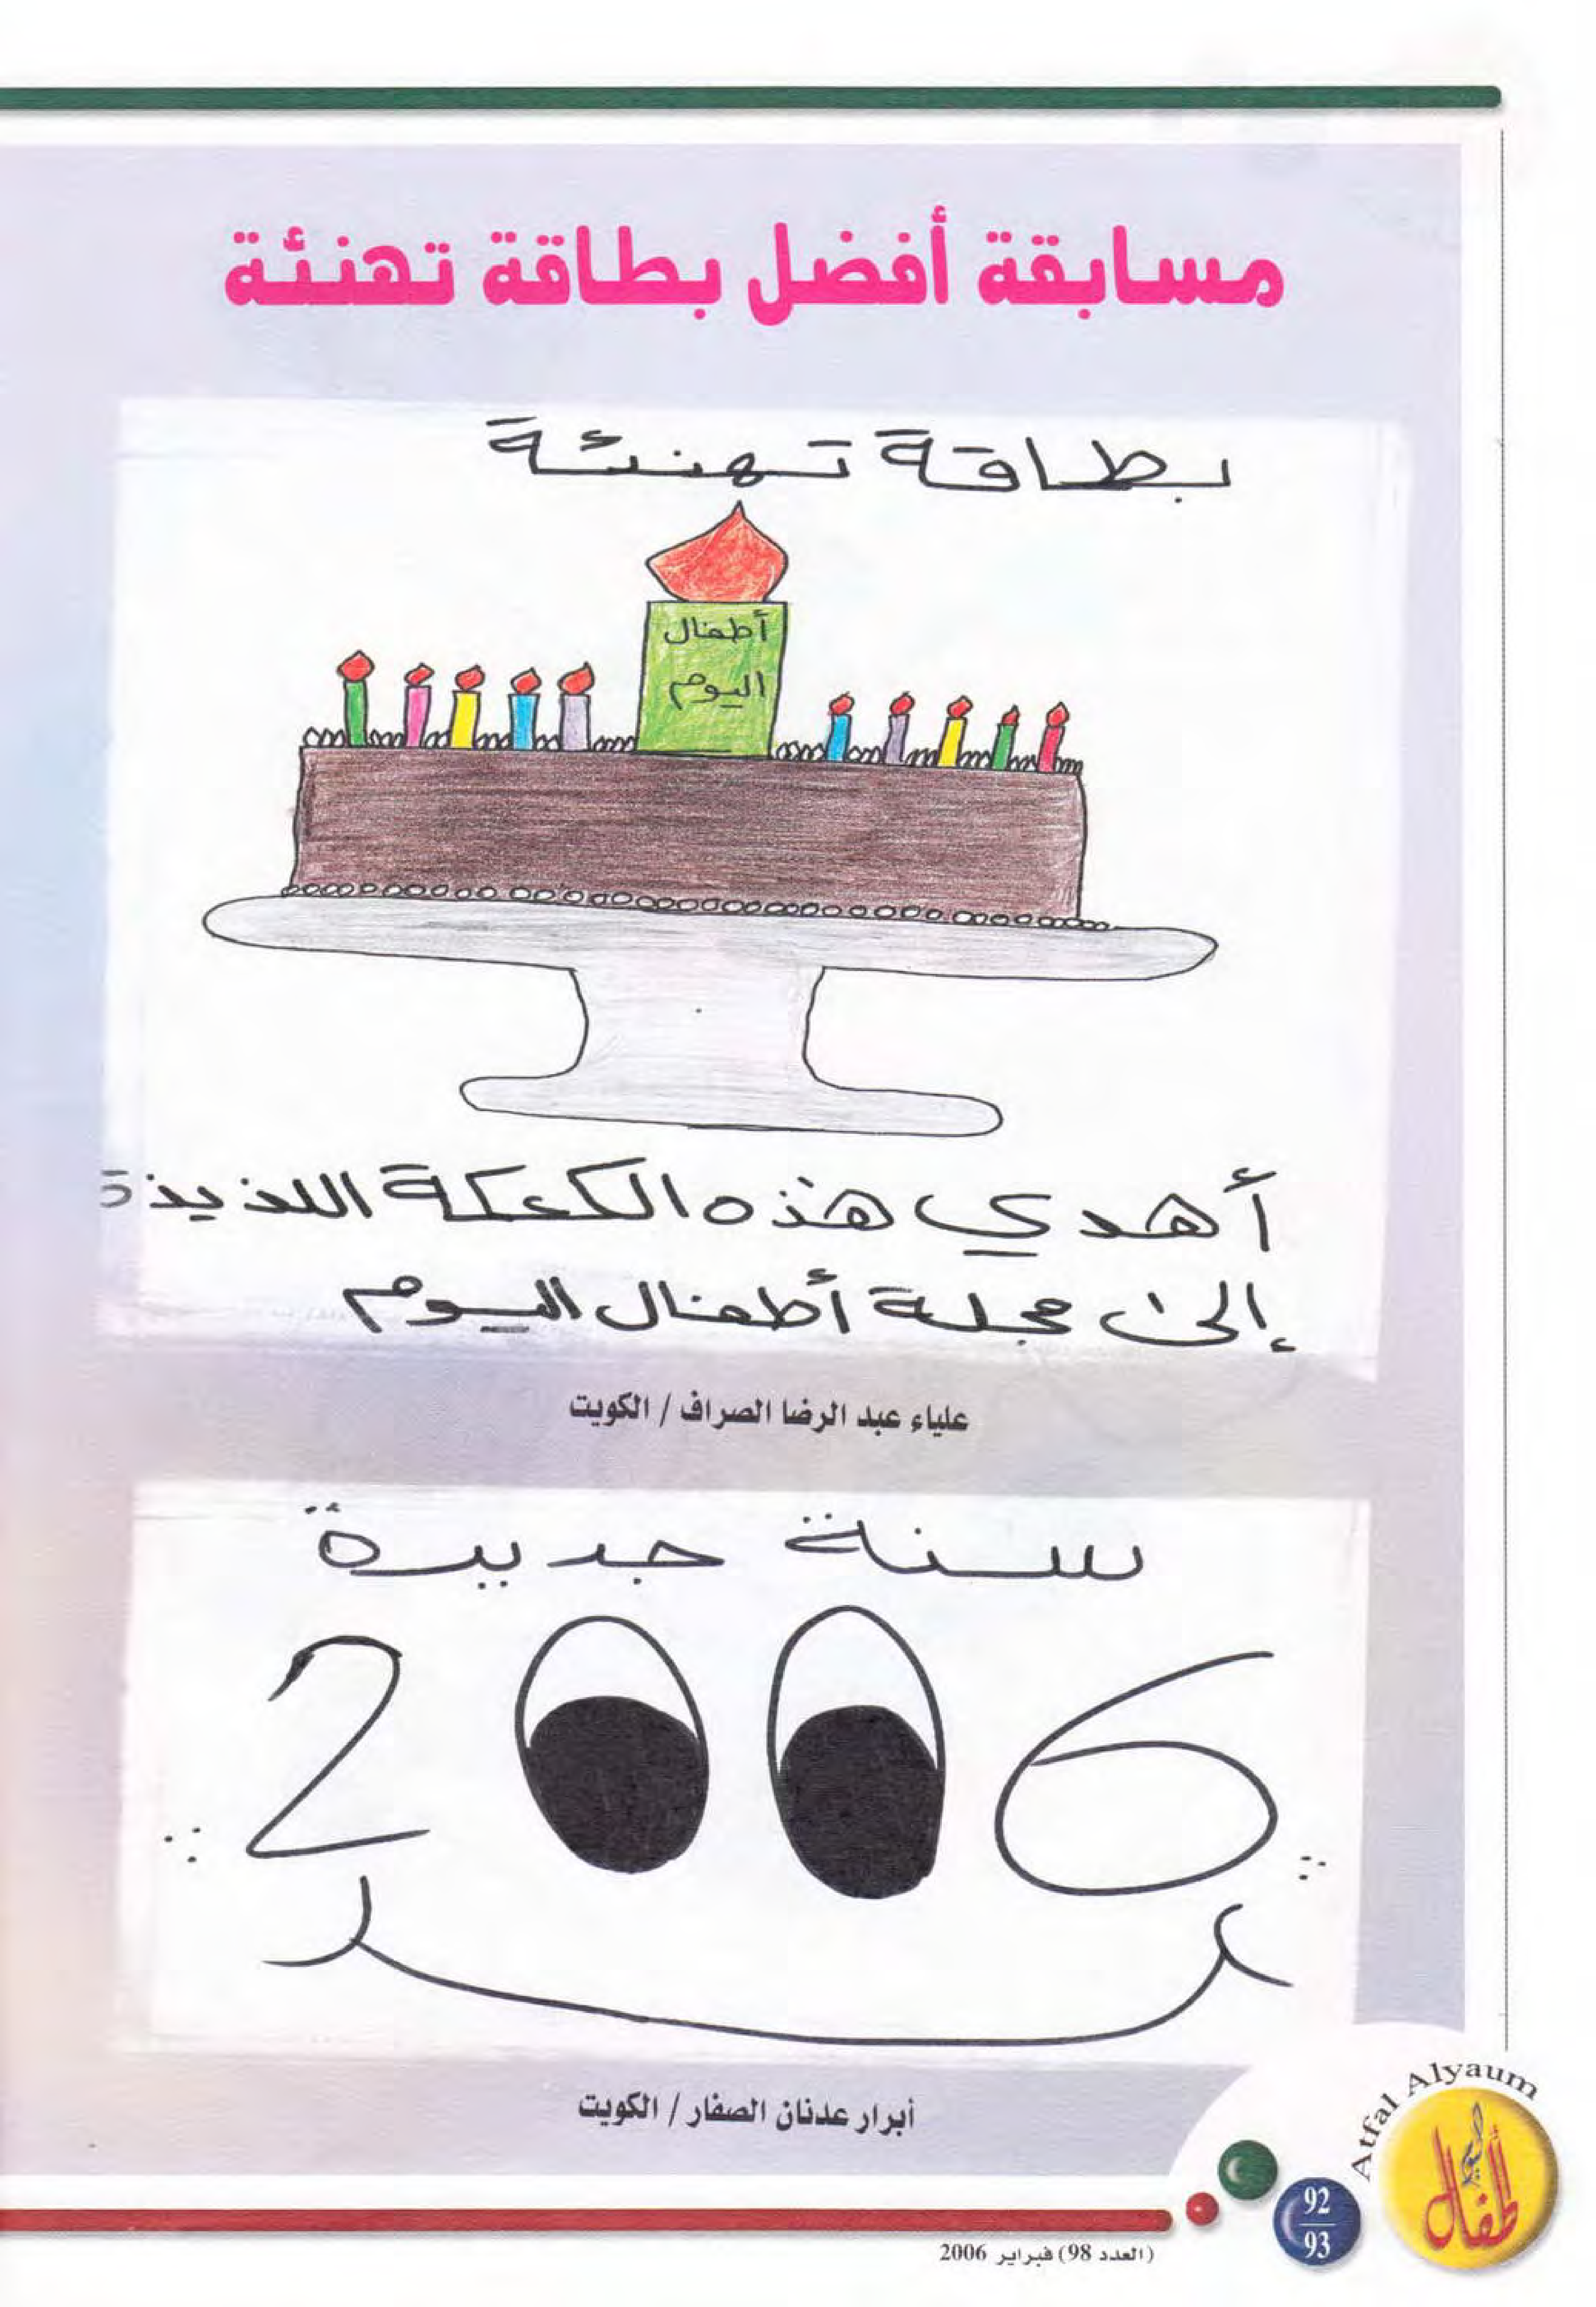 مسابقة أفضل بطاقة تهنئة
بطاقة تهنئة
أطفال
اليوم
أهدي هذه الكعكة اللذيذة
إلى مجلة أطفال اليوم
علياء عبد الرضا الصراف / الكويت
سنة جديدة
2006
أبرار عدنان الصفار / الكويت
Atfal Alyaum
أطفال اليوم
92
93
(العدد 98) فبراير 2006